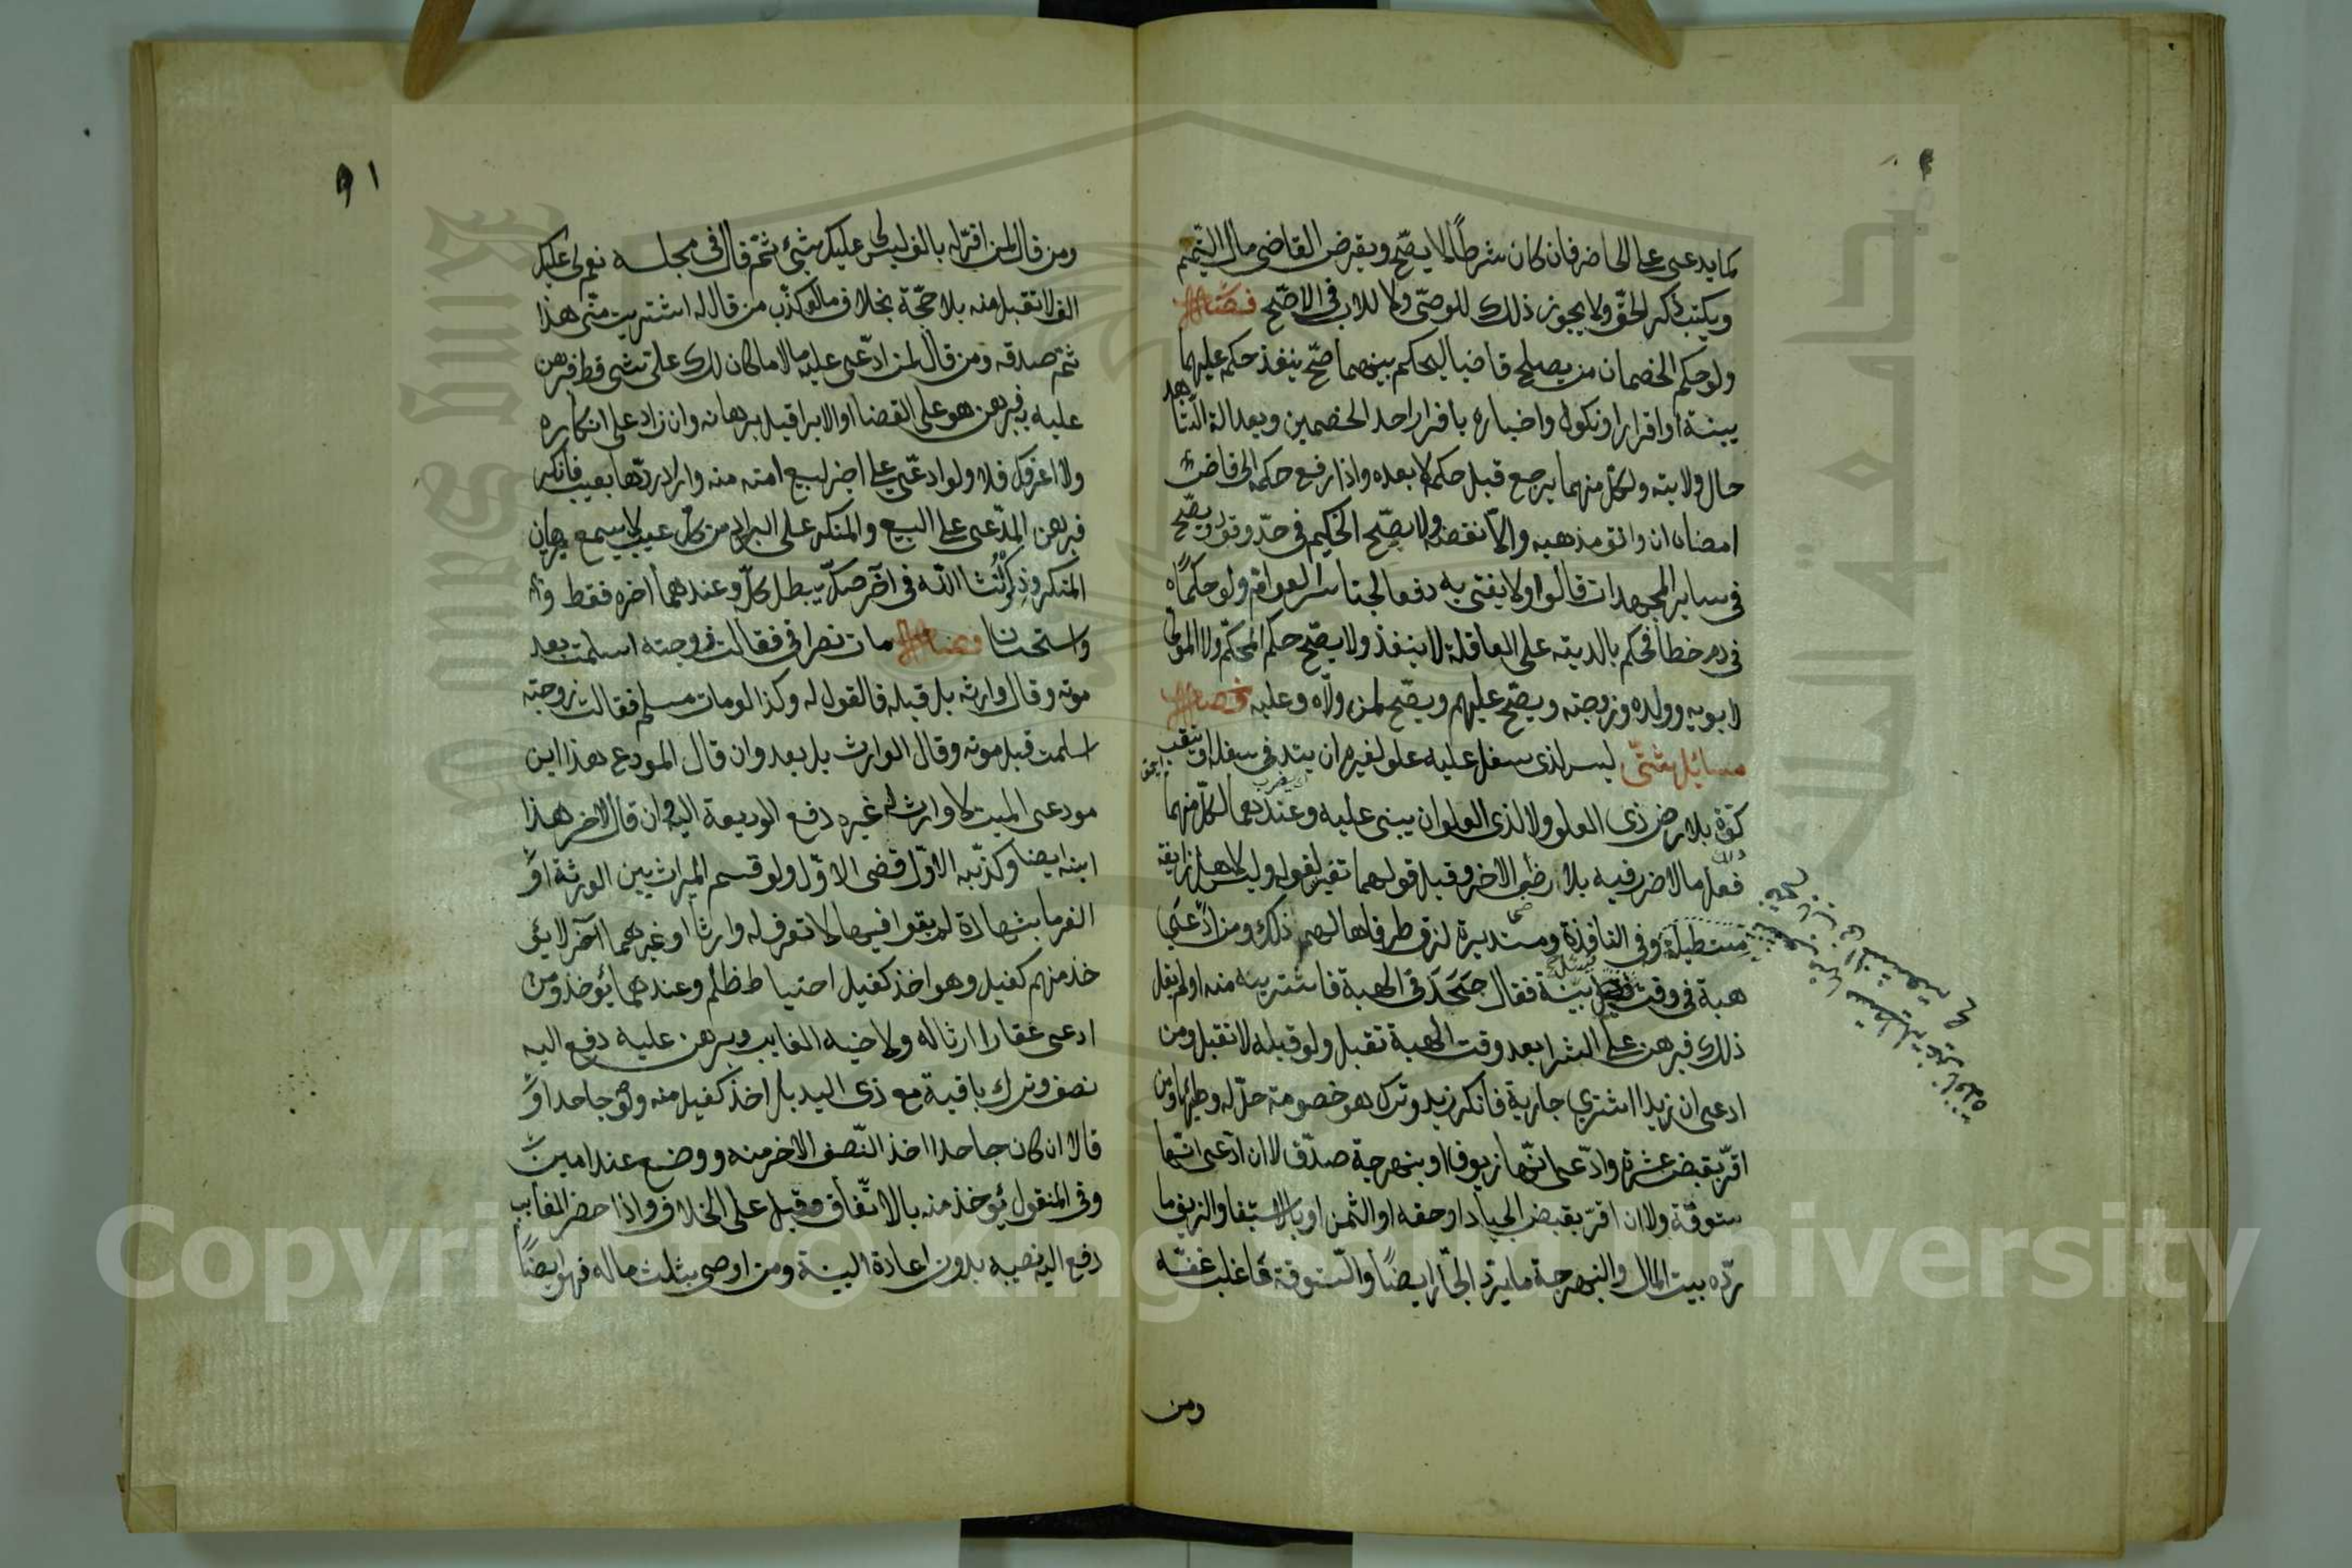 كما يدعى على الحاضر فان كان شرطا لا يصح ويقرض القاضى مال اليتيم
ويكتب ذكر الحق ولا يجوز ذلك للوصى ولا للاب فى الاصح فصل
ولو حكم الخصمان من يصلح قاضيا ليحكم بينهما صح ينفذ حكمه عليهما
ببينة او اقرار او نكول واخباره باقرار احد الخصمين وبعدالة الشاهد
حال ولايته ولكل منهما يرجع قبل حكمه لا بعده واذا رفع حكمه الى قاض
امضاه ان وافق مذهبه والا نقضه ولا يصح التحكيم فى حد وقود ويصح
فى ساير المجتهدات قالوا ولا يفتى به دفعا لتجاسر العوام ولو حكماه
فى دم خطأ فحكم بالدية على العاقلة لا ينفذ ولا يصح حكم المحكم ولا المولى
لابويه وولده وزوجته ويصح عليهم ويصح لمن ولاه وعليه فصل
مسائل شتى ليس لذى سفل عليه علو لغيره ان يتد فى سفله او ينقب
كوة بلا رضى ذى العلو ولا لذى العلو ان يبنى عليه وعندهما لكل منهما
فعل ما لا ضر فيه بلا رضى الاخر وقيل قولهما تفسير لقوله وليس لاهل زايغة
مستطيلة وفى النافذة ومستديرة لزق طرفاها لهم ذلك ومن ادعى
هبة فى وقت بينة فقال جحدنى الهبة فاشتريته منه او لم يقل
ذلك فبرهن على الشرا بعد وقت الهبة تقبل ولو قبله لا تقبل ومن
ادعى ان زيدا اشترى جارية فانكر زيد وترك هو خصومته حل له وطئها ومن
اقر بقبض عشرة وادعى انها زيوف او بنهرجة صدق لا ان ادعى انها
ستوقة ولا ان اقر بقبض الجياد او حقه او الثمن او بالاستيفا والزيف ما
رده بيت المال والنبهرجة ما يرد التجار ايضا والستوقة ما غلب غشه
ومن
٩١
ومن قال لمن اقر له بالف ليس لى عليك شئ ثم قال فى مجلسه نعم لى عليك
الف لا تقبل منه بلا حجة بخلاف ما لو كذب من قال له اشتريت منى هذا
ثم صدقه ومن قال لمن ادعى عليه مالا ما كان لك على شى قط فبرهن
عليه به فبرهن هو على القضا او الابرا قبل برهانه وان زاد على انكاره
ولا اعرفك فلا ولو ادعى على اخر بيع امته منه واراد ردها بعيب فانكر
فبرهن المدعى على البيع والمنكر على البراة من كل عيب لا يسمع برهان
المنكر وذكر ان شا الله فى آخر صك يبطل كله وعندهما اخره فقط وهو
استحسان فصل مات نصرانى فقالت زوجته اسلمت بعد
موته وقال وارثه بل قبله فالقول له وكذا لو مات مسلم فقالت زوجته
اسلمت قبل موته وقال الوارث بل بعد وان قال المودع هذا ابن
مودعى الميت لا وارث له غيره دفع الوديعة اليه وان قال لاخر هذا
ابنه ايضا وكذبه الاول قضى الاول ولو قسم الميراث بين الورثة او
الغرما بشهادة لم يقولوا فيها لا نعرف له وارثا او غريما آخر لا يؤ
خذ منهم كفيل وهو اخذ كفيل احتياط ظلم وعندهما يؤخذ ومن
ادعى عقارا ارثا له ولاخيه الغايب وبرهن عليه دفع اليه
نصفه وترك باقيه مع ذى اليد بلا اخذ كفيل منه ولو جاحدا و
قالا ان كان جاحدا اخذ النصف الاخر منه ووضع عند امين
وفى المنقول يؤخذ منه بالاتفاق وقيل على الخلاف واذا حضر الغايب
دفع اليه نصيبه بدون اعادة البينة ومن اوصى بثلث ماله فهو ايضا
Copyright © King Saud University